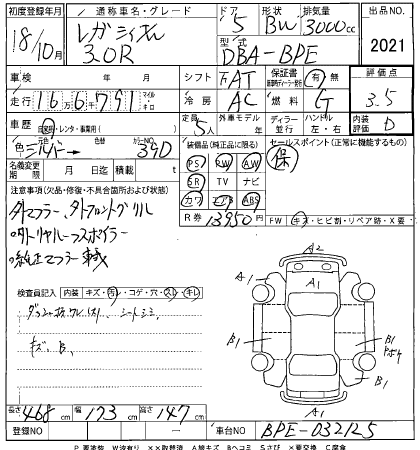 初度登録年月 通称車名・グレード ドア 形状 排気量 出品NO.
18/10月 レガシィXXL 3.0R 5 BW 3000cc 2021
型式 DBA-BPE
車検 年 月 シフト FAT 保証書 有・無 評価点
走行 166千791 マイル キロ 冷房 AC 燃料 G 3.5
車歴 自家用・レンタ・事業用( ) 定員 5人 外車モデル 年 ディーラー 並行 ハンドル 左・右 内装評価 D
色 シルバー 色替 カラーNO. 39D 装備品(純正品に限る) セールスポイント(正常に機能するもの)
名義変更期限 月 日 積載量 t
PS PW AW 保
注意事項(欠品・修復・不具合箇所および状態) SR TV ナビ
外マフラー、外フロントグリル カワ エアB ABS
・外リヤルーフスポイラー R券 13950円
・純正マフラー車載 FW キズ・ヒビ割・リペア跡・X要
検査員記入 内装 キズ・汚レ・コゲ・穴・スレ・キレ
シートシミ
キズ、B、
A2
A1 A1 A1
B1 B1
B1
A1
長さ 468cm 幅 173cm 高さ 147cm
登録NO 車台NO BPE-032125
P要塗装 W波有り ××取替済 A線キズ Bヘコミ Sさび ×要交換 C腐食